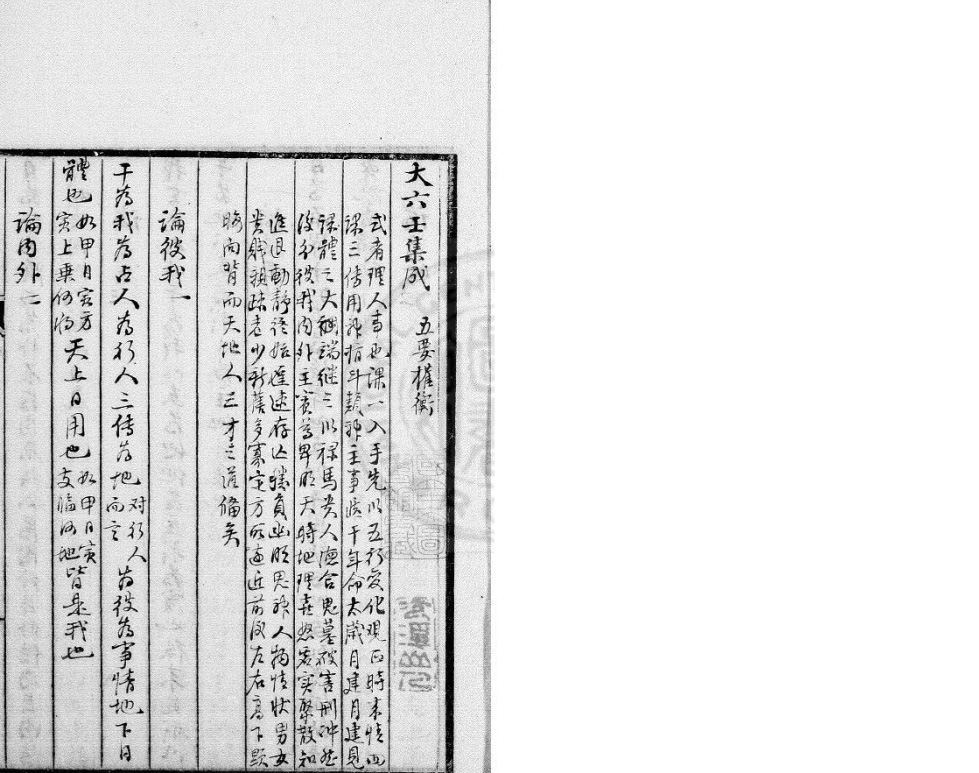 大六壬集成 五要權衡
式者理人事也課一入手先以五行變化觀正時末情四
課三传用神指斗類神主事從干年命太歲月建月建見
課體之大綱端继之以禄馬贵人德合鬼墓破害刑冲然
後分彼我内外主賓尊卑明天時地理喜怒虚實聚散知
進退動靜終始遲速存亡勝負幽明鬼神人物情狀男女
贵賤親疎老少新舊多寡定方所遠近前後左右高下顯
晦向背而天地人三才之道備矣
論彼我一
干為我為占人為行人三传為地对行人而言為彼為事情地下日
體也如甲日寅方寅上乗何将天上日用也如甲日寅支臨何地皆是我也
論内外二